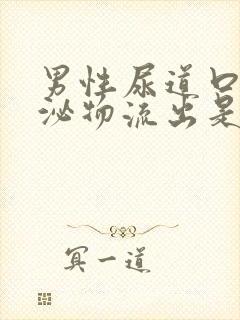 男性尿道口
泌物流出是
冥一道